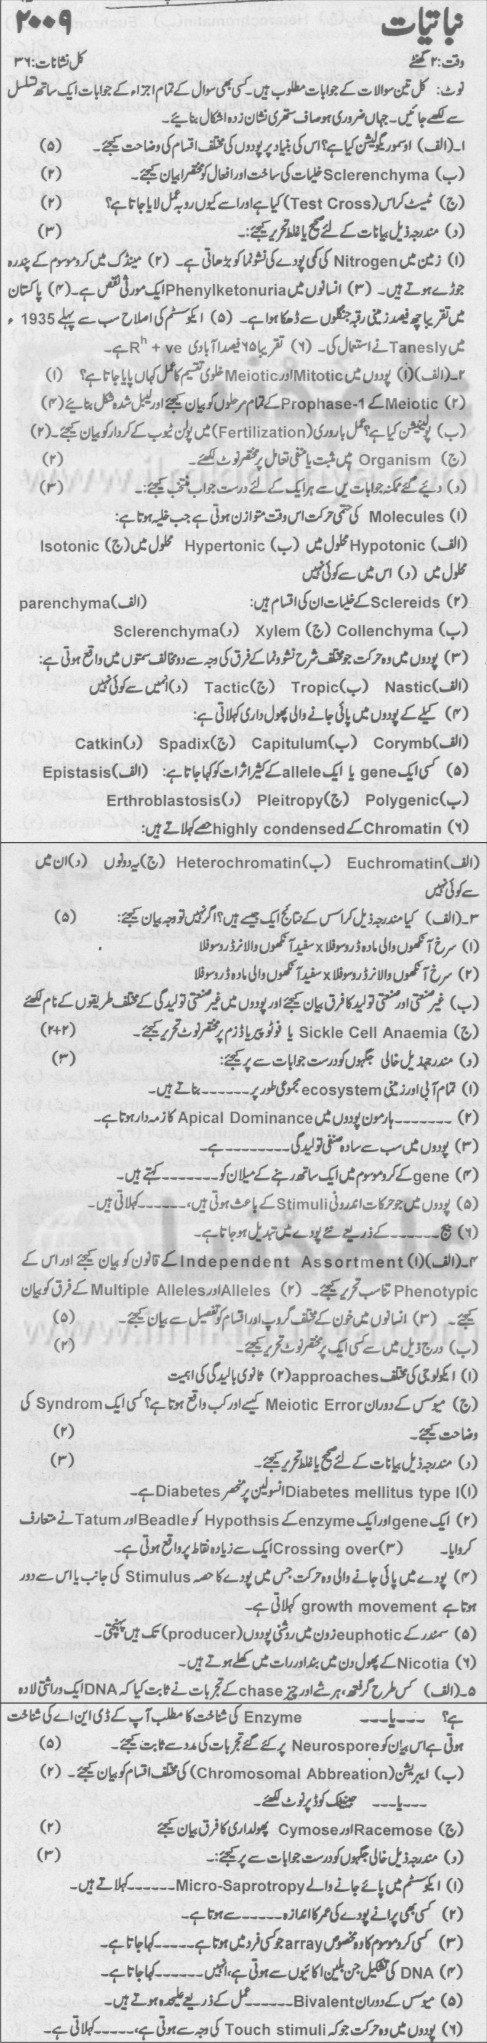 نباتیات ۲۰۰۹
وقت: ۲ گھنٹے کل نشانات: ۳۶
نوٹ: کل تین سوالات کے جوابات مطلوب ہیں۔ کسی بھی سوال کے تمام اجزاء کے جوابات ایک ساتھ تسلسل
سے لکھے جائیں۔ جہاں ضروری ہو صاف ستھری نشان زدہ اشکال بنائیے۔
۱۔(الف) اوسمورگولیشن کیا ہے؟ اس کی بنیاد پر پودوں کی مختلف اقسام کی وضاحت کیجئے۔ (۵)
(ب) Sclerenchyma خلیات کی ساخت اور افعال کو مختصراً بیان کیجئے۔ (۲)
(ج) ٹیسٹ کراس (Test Cross) کیا ہے اور اسے کیوں روبہ عمل لایا جاتا ہے؟ (۲)
(د) مندرجہ ذیل بیانات کے لئے صحیح یا غلط تحریر کیجئے: (۳)
(۱) زمین میں Nitrogen کی کمی پودے کی نشونما کو بڑھاتی ہے۔ (۲) مینڈک میں کروموسوم کے پندرہ
جوڑے ہوتے ہیں۔ (۳) انسانوں میں Phenylketonuria ایک موروثی نقص ہے۔ (۴) پاکستان
میں تقریباً چھ فیصد زمینی رقبہ جنگلوں سے ڈھکا ہوا ہے۔ (۵) ایکوسسٹم کی اصلاح سب سے پہلے 1935ء
میں Tanesly نے استعمال کی۔ (۶) تقریباً ۶۵ فیصد آبادی Rh + ve ہے۔
۲۔(الف)(۱) پودوں میں Mitotic اور Meiotic خلوی تقسیم کا عمل کہاں پایا جاتا ہے؟ (۱)
(۲) Meiotic کے Prophase-1 کے تمام مرحلوں کو بیان کیجئے اور لیبل شدہ شکل بنائیے (۴)
(ب) پولینیشن کیا ہے؟ عمل باروری (Fertilization) میں پولن ٹیوب کے کردار کو بیان کیجئے۔ (۲)
(ج) Organism میں مثبت یا منفی تعامل پر مختصر نوٹ لکھئے۔ (۲)
(د) دئیے گئے ممکنہ جوابات میں سے ہر ایک کے لئے درست جواب منتخب کیجئے: (۳)
(۱) Molecules کی حتمی حرکت اس وقت متوازن ہوتی ہے جب خلیہ ہوتا ہے:
(الف) Hypotonic محلول میں (ب) Hypertonic محلول میں (ج) Isotonic
محلول میں (د) اس میں سے کوئی نہیں
(۲) Sclereids کے خلیات ان کی اقسام ہیں: (الف) parenchyma
(ب) Collenchyma (ج) Xylem (د) Sclerenchyma
(۳) پودوں میں وہ حرکت جو مختلف شرح نشونما کے فرق کی وجہ سے دو مخالف سمتوں میں واقع ہوتی ہے:
(الف) Nastic (ب) Tropic (ج) Tactic (د) انمیں سے کوئی نہیں
(۴) کیلے کے پودوں میں پائی جانے والی پھول داری کہلاتی ہے:
(الف) Corymb (ب) Capitulum (ج) Spadix (د) Catkin
(۵) کسی ایک gene یا ایک allele کے کثیر اثرات کو کہا جاتا ہے: (الف) Epistasis
(ب) Polygenic (ج) Pleitropy (د) Erthroblastosis
(۶) Chromatin کے highly condensed حصے کہلاتے ہیں:
(الف) Euchromatin (ب) Heterochromatin (ج) یہ دونوں (د) ان میں
سے کوئی نہیں
۳۔(الف) کیا مندرجہ ذیل کراسس کے نتائج ایک جیسے ہیں؟ اگر نہیں تو وجہ بیان کیجئے: (۵)
(۱) سرخ آنکھوں والی مادہ ڈروسوفلا x سفید آنکھوں والا نر ڈروسوفلا
(۲) سرخ آنکھوں والا نر ڈروسوفلا x سفید آنکھوں والی مادہ ڈروسوفلا
(ب) غیر صنفی اور صنفی تولید کا فرق بیان کیجئے اور پودوں میں غیر صنفی تولیدگی کے مختلف طریقوں کے نام لکھئے
(ج) Sickle Cell Anaemia یا فوٹو پیریاڈزم پر مختصر نوٹ تحریر کیجئے۔ (۲+۲)
(د) مندرجہ ذیل خالی جگہوں کو درست جوابات سے پر کیجئے: (۳)
(۱) تمام آبی اور زمینی ecosystem مجموعی طور پر ------ بناتے ہیں۔
(۲) ------ ہارمون پودوں میں Apical Dominance کا ذمہ دار ہوتا ہے۔
(۳) پودوں میں سب سے سادہ صنفی تولیدگی ------ ہے۔
(۴) gene کے کروموسوم میں ایک ساتھ رہنے کے میلان کو ------ کہتے ہیں۔
(۵) پودوں میں جو حرکات اندرونی Stimuli کے باعث ہوتی ہیں، ------ کہلاتی ہیں۔
(۶) بیج ------ کے ذریعے نئے پودے میں تبدیل ہو جاتا ہے۔
۴۔(الف)(۱) Independent Assortment کے قانون کو بیان کیجئے اور اس کے
Phenotypic تناسب تحریر کیجئے۔ (۲) Alleles اور Multiple Alleles کے فرق کو بیان
کیجئے۔ (۳) انسانوں میں خون کے مختلف گروپ اور اقسام کو تفصیل سے بیان کیجئے۔ (۵)
(ب) درج ذیل میں سے کسی ایک پر مختصر نوٹ تحریر کیجئے۔ (۲)
(۱) ایکولوجی کی مختلف approaches (۲) ثانوی بالیدگی کی اہمیت
(ج) میوسس کے دوران Meiotic Error کیسے اور کب واقع ہوتا ہے؟ کسی ایک Syndrom کی
وضاحت کیجئے۔ (۲)
(د) مندرجہ ذیل بیانات کے لئے صحیح یا غلط تحریر کیجئے۔ (۳)
(۱) Diabetes mellitus type I انسولین پر منحصر Diabetes ہے۔
(۲) ایک gene اور ایک enzyme کے Hypothsis کو Beadle اور Tatum نے متعارف
کروایا۔ (۳) Crossing over ایک سے زیادہ نقاط پر واقع ہوتی ہے۔
(۴) پودے میں پائی جانے والی وہ حرکت جس میں پودے کا حصہ Stimulus کی جانب یا اس سے دور
ہوتا ہے growth movement کہلاتی ہے۔
(۵) سمندر کے euphotic زون میں روشنی پودوں (producer) تک نہیں پہنچتی۔
(۶) Nicotia کے پھول دن میں بند اور رات میں کھلے ہوتے ہیں۔
۵۔(الف) کس طرح گرفتھ، ہرشے اور چیز chase کے تجربات نے ثابت کیا کہ DNA ایک وراثتی مادہ
ہے؟ ---یا--- Enzyme کی شناخت کا مطلب آپ کے ڈی این اے کی شناخت
ہوتی ہے اس بیان کو Neurospore پر کئے گئے تجربات کی مدد سے ثابت کیجئے۔ (۵)
(ب) ایبریشن (Chromosomal Abbreation) کی مختلف اقسام کو بیان کیجئے۔ (۲)
---یا--- جینیٹک کوڈ پر نوٹ لکھئے۔
(ج) Racemose اور Cymose پھولداری کا فرق بیان کیجئے (۲)
(د) مندرجہ ذیل خالی جگہوں کو درست جوابات سے پر کیجئے:۔ (۳)
(۱) ایکوسسٹم میں پائے جانے والے Micro-Saprotropy ------ کہلاتے ہیں۔
(۲) کسی بھی پرانے پودے کی عمر کا اندازہ ------ سے ہوتا ہے۔
(۳) کسی کروموسوم کا وہ مخصوص array جو کسی فرد میں ہوتا ہے ------ کہا جاتا ہے۔
(۴) DNA کی تشکیل جن بلین اکائیوں سے ہوتی ہے، انہیں ------ کہا جاتا ہے۔
(۵) میوسس کے دوران Bivalent ------ عمل کے ذریعے علیحدہ ہوتے ہیں۔
(۶) پودوں میں وہ حرکت جو کہ Touch stimuli کی وجہ سے ہوتی ہے، ------ کہلاتی ہے۔